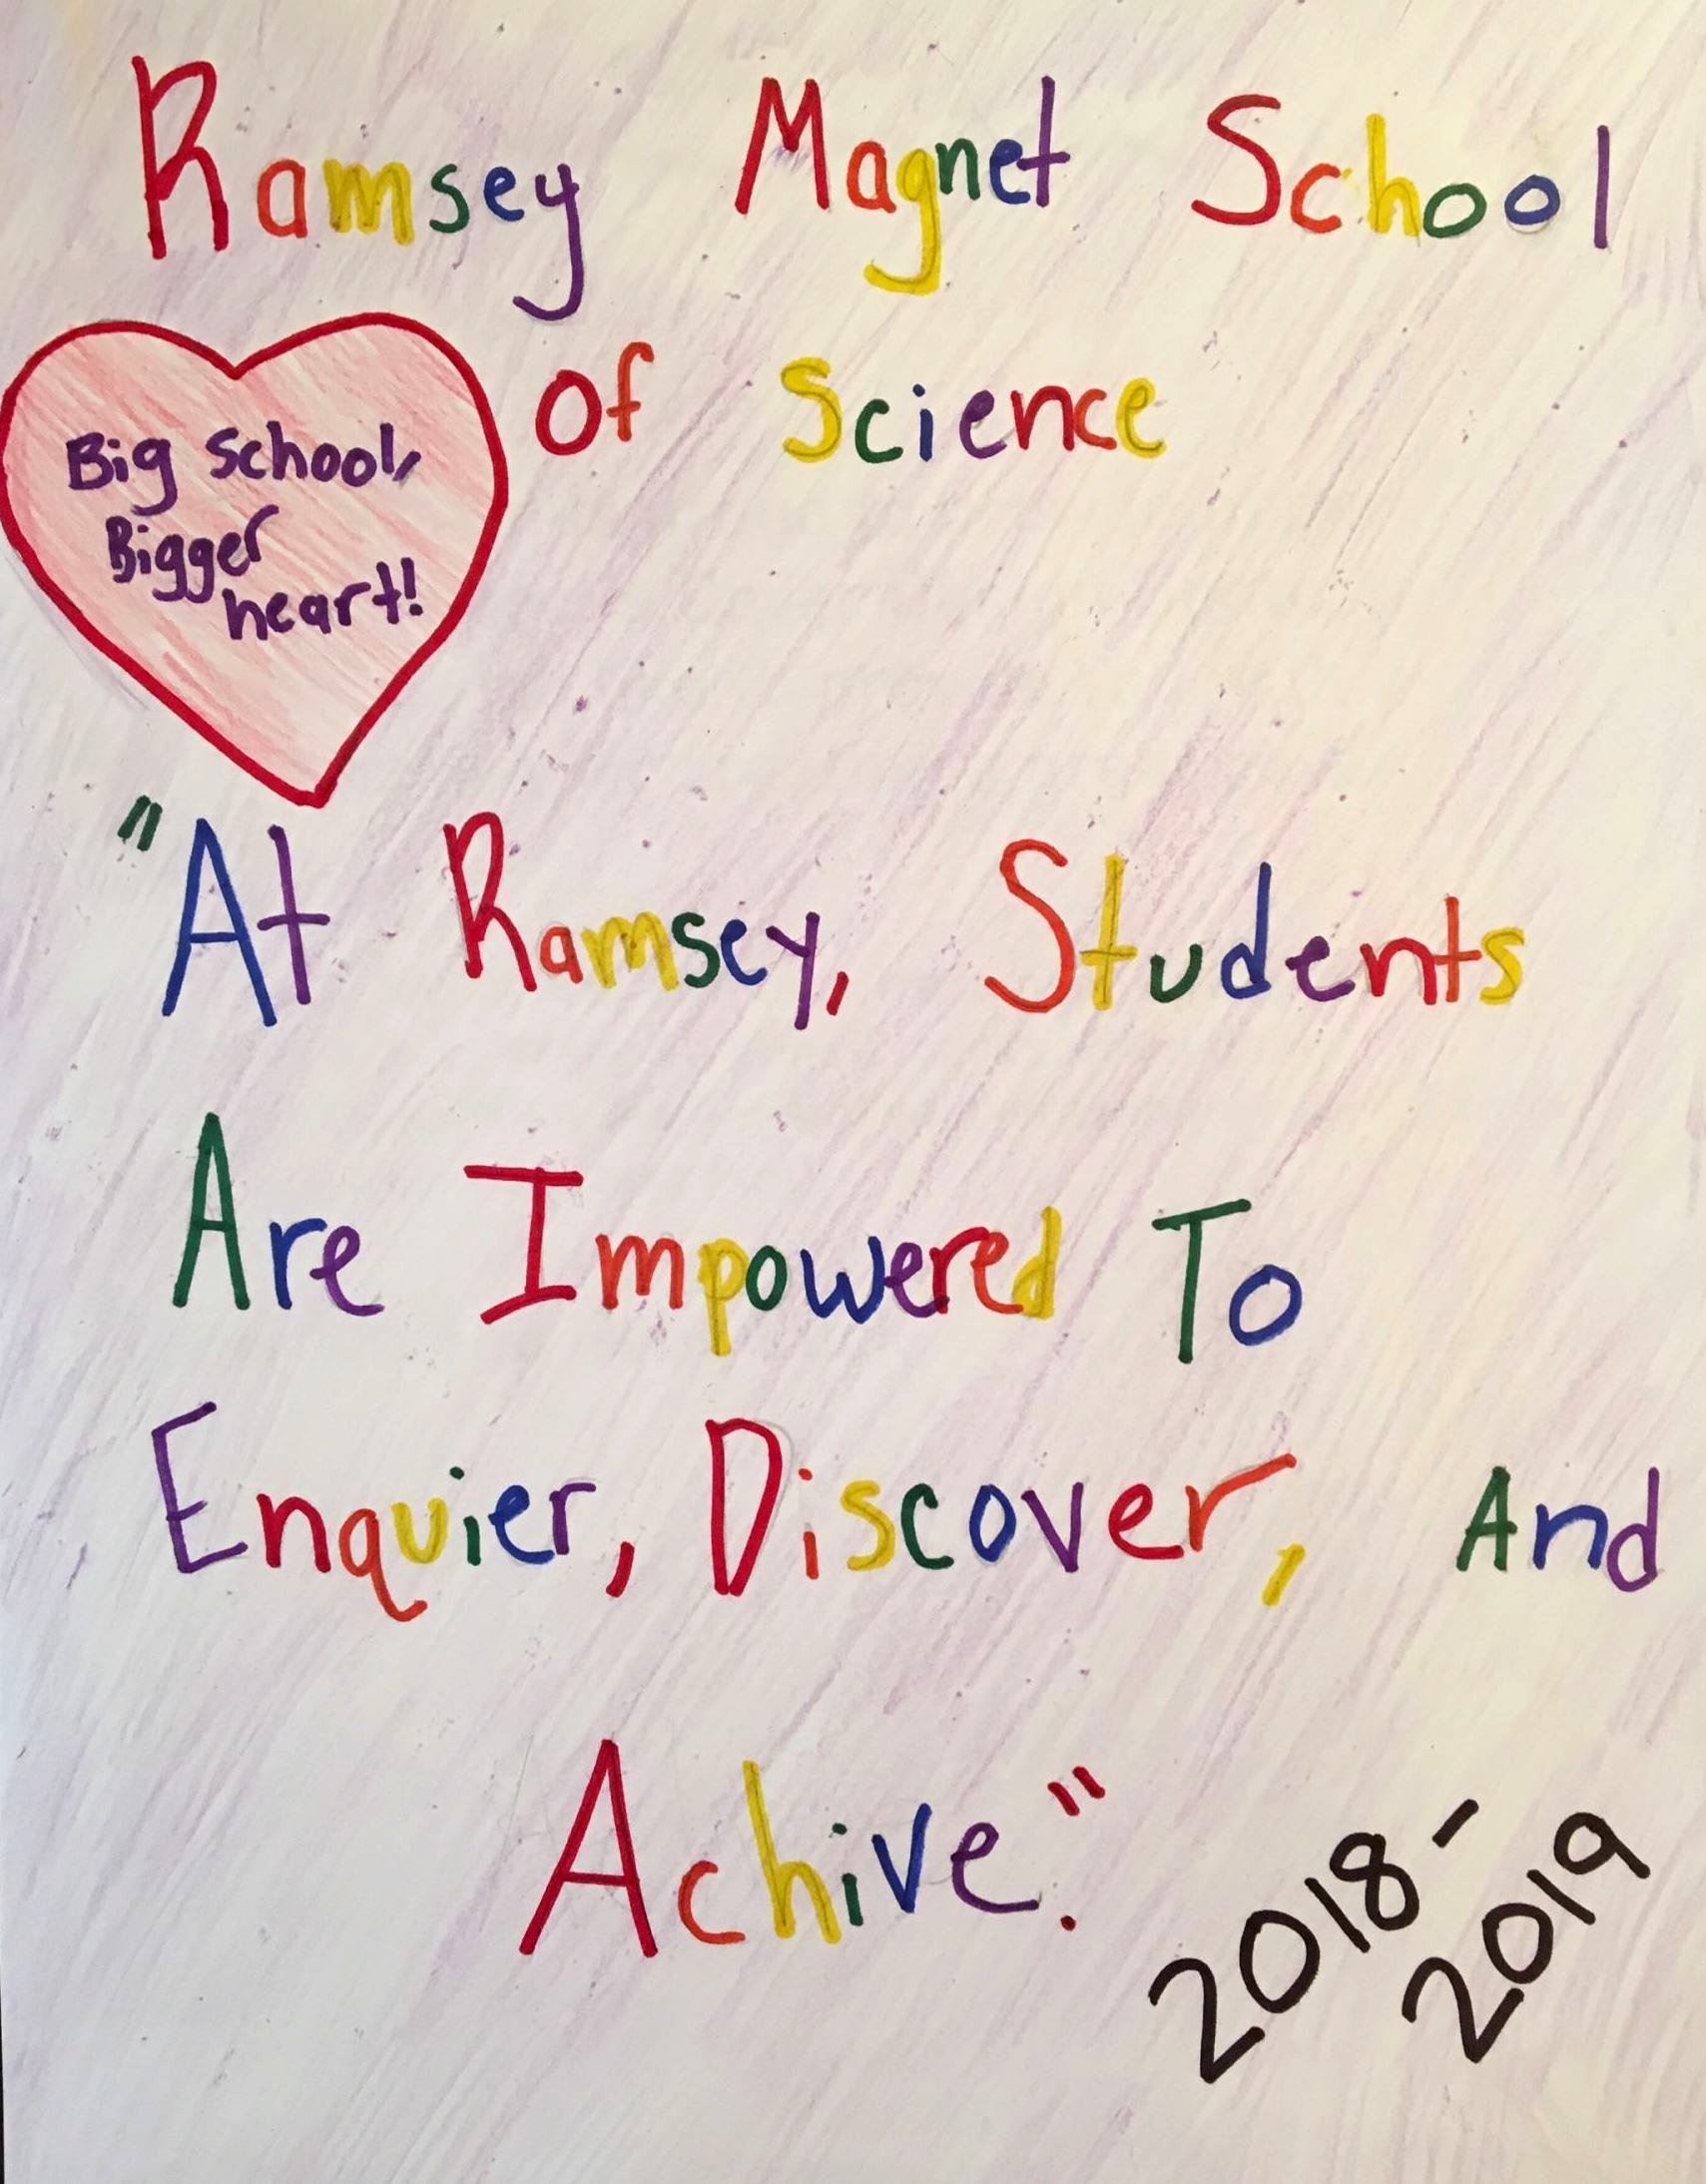 Ramsey Magnet School
of Science
Big School,
Bigger
heart!
"At Ramsey, Students
Are Impowered To
Enquier, Discover, And
Achive."
2018-
2019